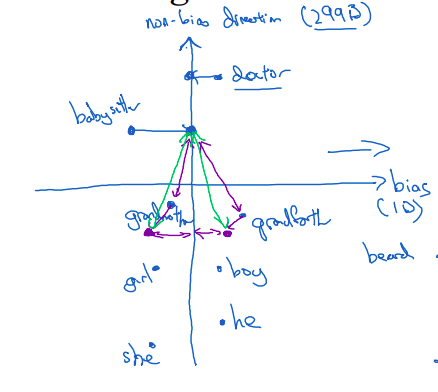 non-bias direction (299D)
doctor
babysitter
bias
(1D)
grandmother
grandfath
beard
girl
boy
he
she